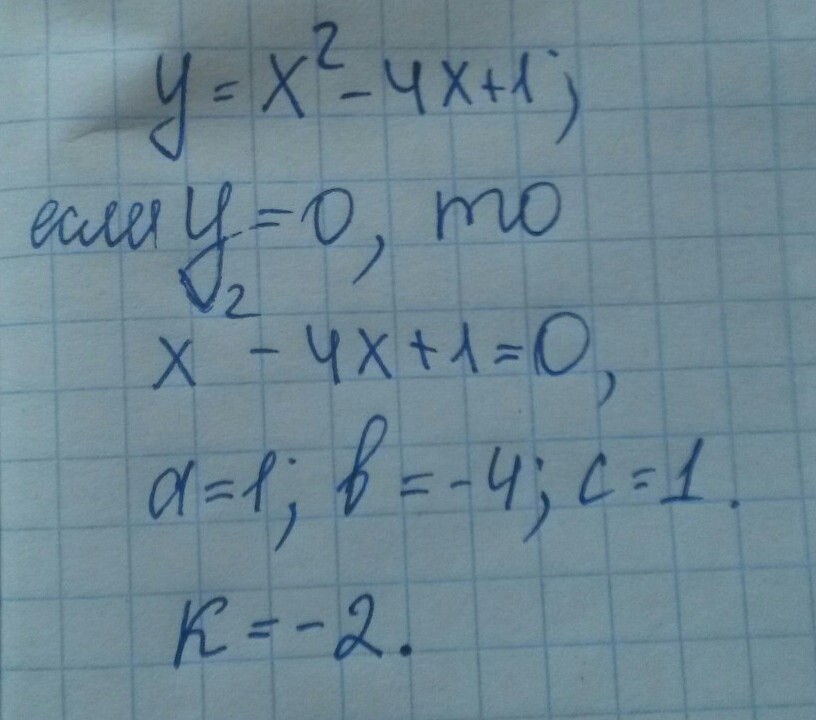 y = x² - 4x + 1;
если y = 0, то
x² - 4x + 1 = 0,
a = 1; b = -4; c = 1.
K = -2.